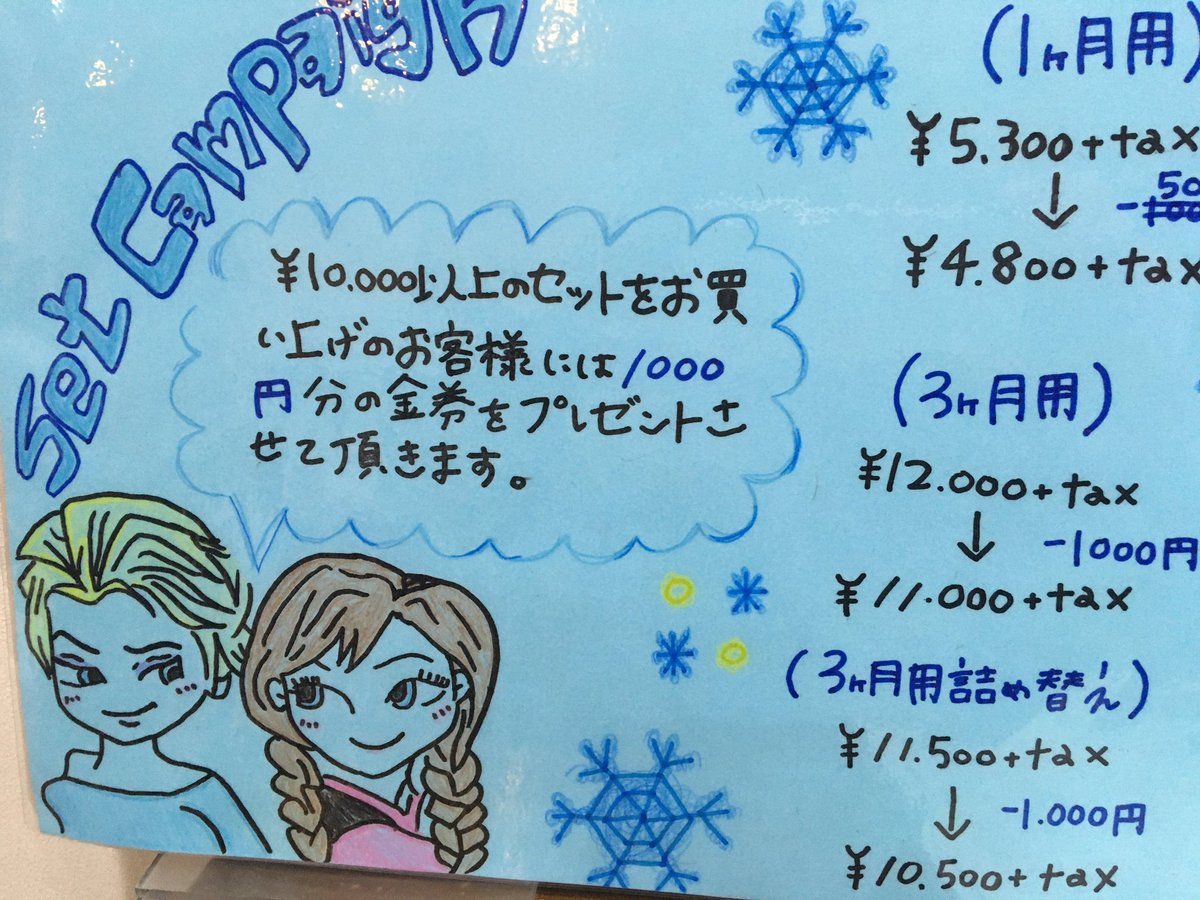 Set Campaign
¥10.000以上のセットをお買
い上げのお客様には1000
円分の金券をプレゼントさ
せて頂きます。
(1ヶ月用)
¥5.300+tax
↓ -50
¥4.800+tax
(3ヶ月用)
¥12.000+tax
↓ -1000円
¥11.000+tax
(3ヶ月用詰め替え)
¥11.500+tax
↓ -1.000円
¥10.500+tax